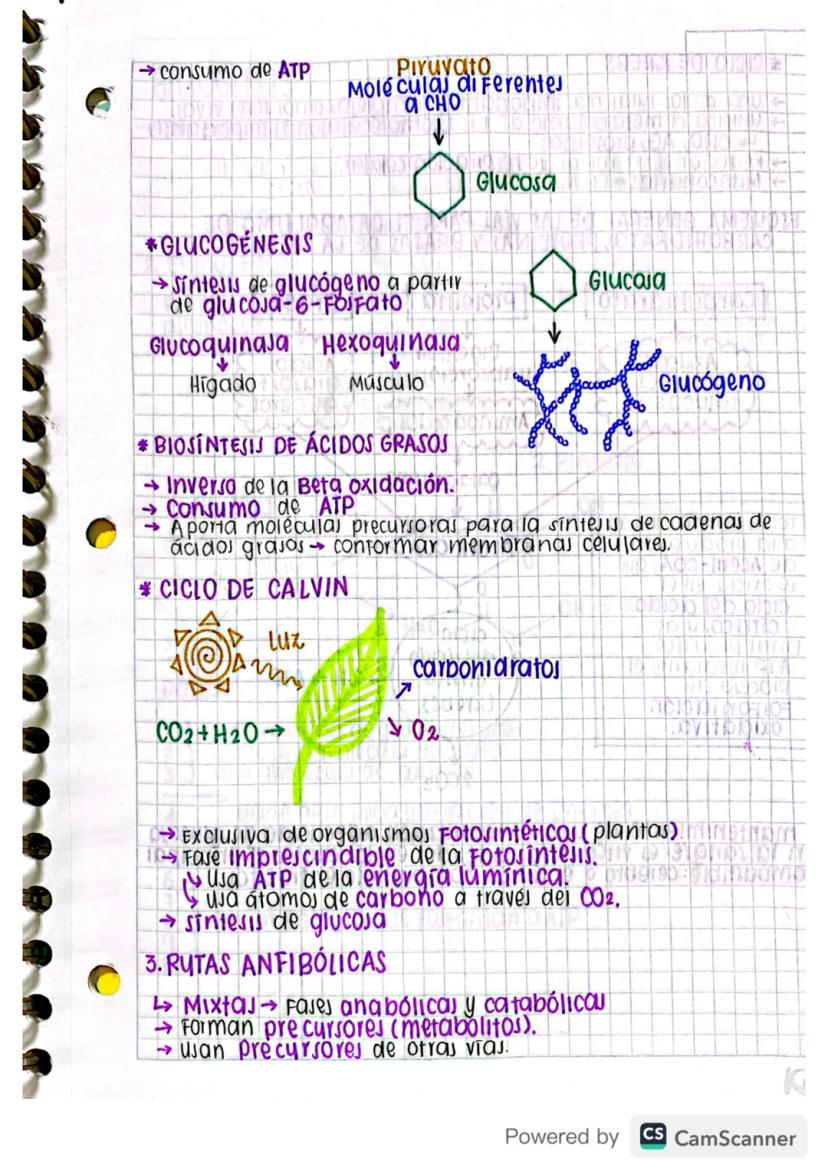 → consumo de ATP
Piruvato
Moléculas diferentes
a CHO
Glucosa
* GLUCOGÉNESIS
→ síntesis de glucógeno a partir
de glucosa-6-fosfato
Glucosa
Glucoquinasa Hexoquinasa
Hígado Músculo
Glucógeno
* BIOSÍNTESIS DE ÁCIDOS GRASOS
→ Inverso de la Beta oxidación.
→ Consumo de ATP
→ Aporta moléculas precursoras para la síntesis de cadenas de
ácidos grasos → conformar membranas celulares.
* CICLO DE CALVIN
Luz
carbonidratos
CO2 + H2O →
O2
→ Exclusiva de organismos Fotosintéticos (plantas)
→ Fase imprescindible de la Fotosíntesis.
↳ Usa ATP de la energía lumínica.
↳ usa átomos de carbono a través del CO2.
→ síntesis de glucosa
3. RUTAS ANFIBÓLICAS
↳ Mixtas → Fases anabólicas y catabólicas
→ Forman precursores (metabolitos).
→ usan precursores de otras vías.
Powered by CS CamScanner